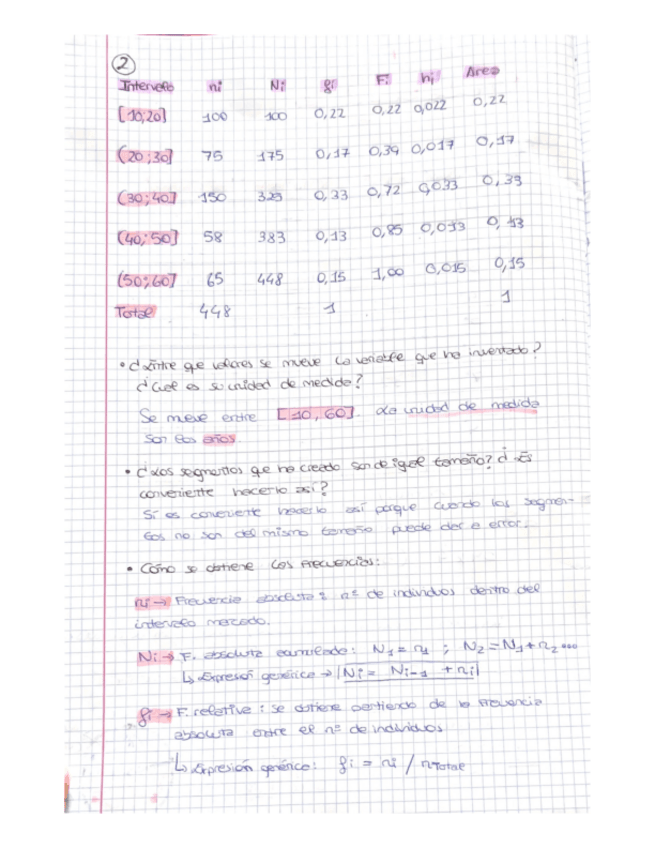 2
Intervalo ni Ni fi Fi hi Area
[10;20] 100 100 0,22 0,22 0,022 0,22
(20;30] 75 175 0,17 0,39 0,017 0,17
(30;40] 150 325 0,33 0,72 0,033 0,33
(40;50] 58 383 0,13 0,85 0,013 0,13
(50;60] 65 448 0,15 1,00 0,015 0,15
Total 448 1 1
• ¿Entre que valores se mueve la variable que ha inventado?
¿Cual es su unidad de medida?
Se mueve entre [10,60]. La unidad de medida
son los años.
• ¿Los segmentos que ha creado son de igual tamaño? ¿Es
conveniente hacerlo así?
Sí es conveniente hacerlo así porque cuando los segmen-
tos no son del mismo tamaño puede dar a error.
• Cómo se obtiene las frecuencias:
ni → Frecuencia absoluta: nº de individuos dentro del
intervalo marcado.
Ni → F. absoluta acumulada: N1 = n1 ; N2 = N1 + n2 ...
↳ Expresión genérica → Ni = Ni-1 + ni
fi → F. relativa: se obtiene partiendo de la frecuencia
absoluta entre el nº de individuos
↳ Expresión genérica: fi = ni / nTotal